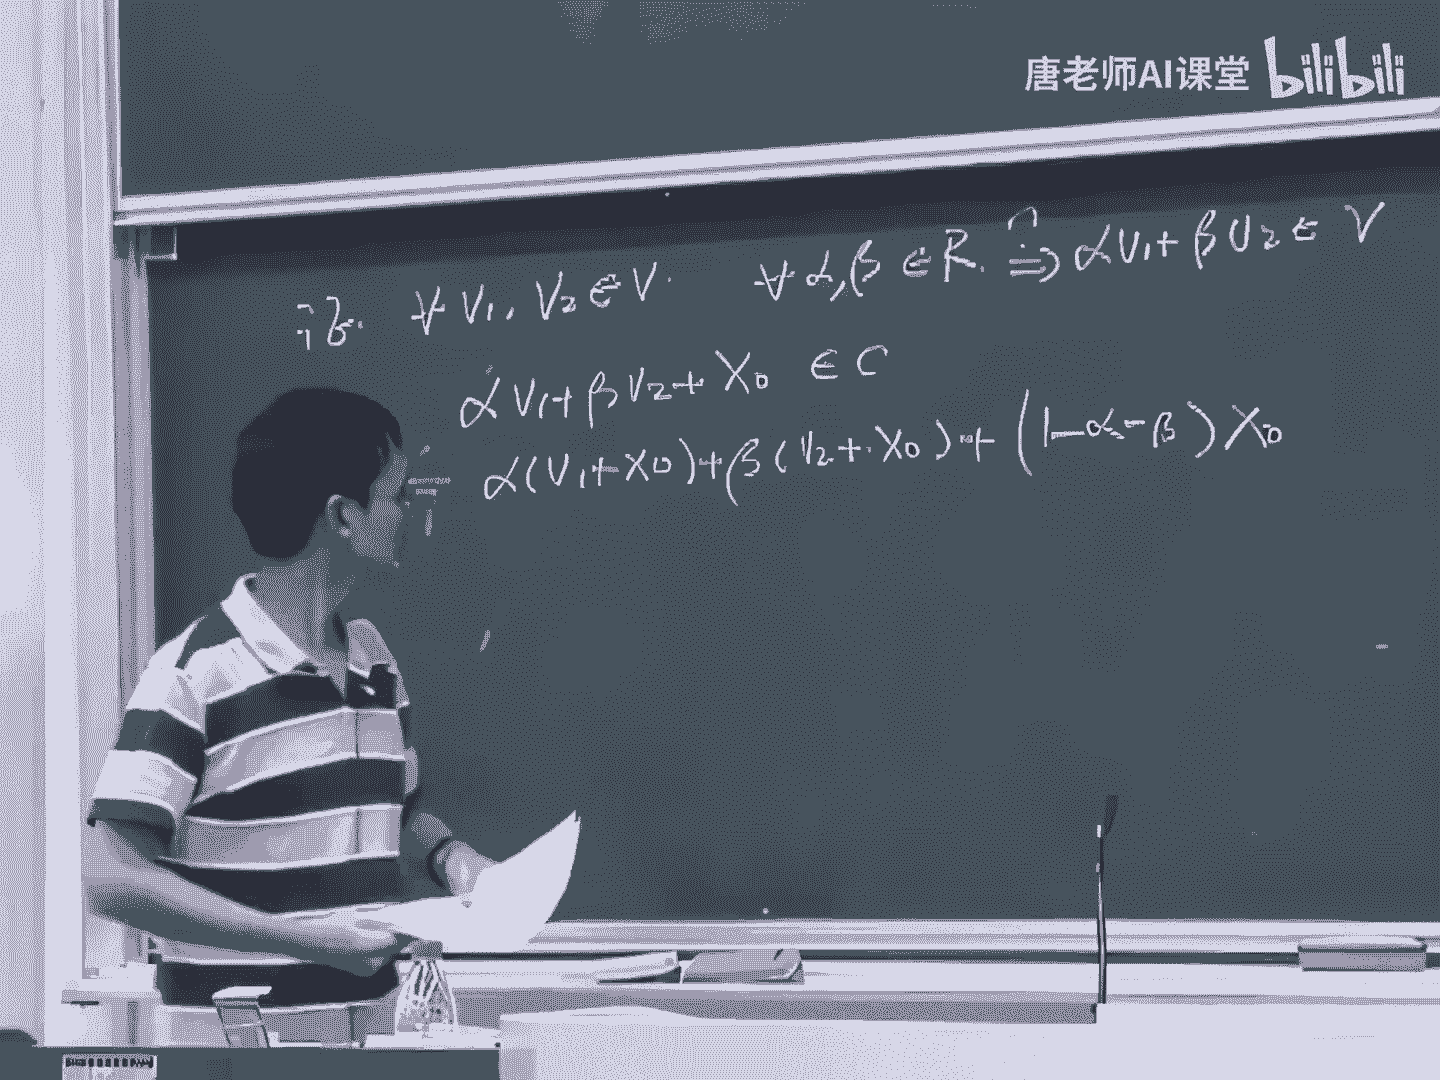 唐老师AI课堂 bilibili
证. ∀ V₁, V₂ ∈ V. ∀ α, β ∈ R. ⇒ αV₁ + βV₂ ∈ V
αV₁ + βV₂ + X₀ ∈ C
α(V₁ + X₀) + β(V₂ + X₀) + (1 - α - β)X₀